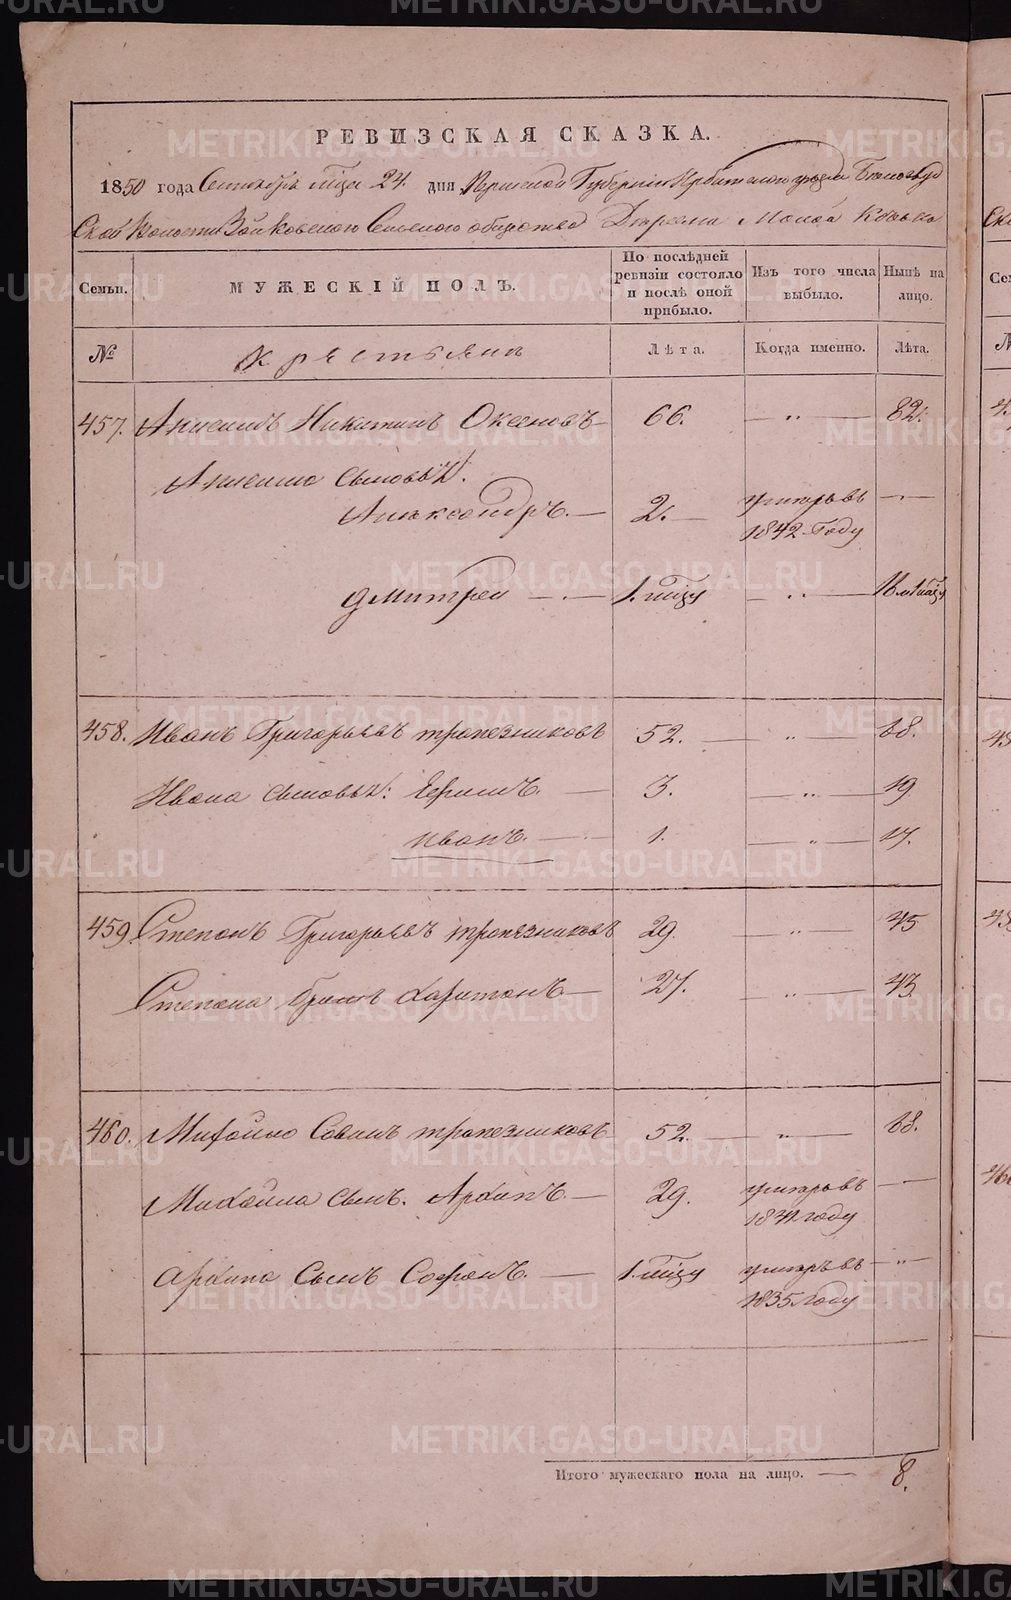 РЕВИЗСКАЯ СКАЗКА.
1850 года Сентября м̃ца 24. дня, Пермской Губернии Ирбитскаго уезда Белослуд
Ской Волости Зайковскаго Сельскаго общества Деревни Малой Кочевки
Семьи.
МУЖЕСКІЙ ПОЛЪ.
По послѣдней ревизіи состояло и послѣ оной прибыло.
Изъ того числа выбыло.
Нынѣ на лицо.
№
Крестьяне
Лѣта.
Когда именно.
Лѣта.
457. Анисимъ Никитинъ Оксеновъ 66. — „ — 82.
Анисима Сыновья:
Александръ. — 2. — умеръ въ 1842 Году — „ —
Дмитрей — „ — 1. м̃цу — „ — 16 и 1 м̃цу
458. Иванъ Григорьевъ трапезниковъ 52. — „ — 68.
Ивана Сыновья: Ефимъ. — 3. — „ — 19
иванъ. — 1. — „ — 17.
459. Степанъ Григорьевъ трапезниковъ 29. — „ — 45
Степана братъ Харитонъ — 27. — „ — 43.
460. Михайло Савинъ трапезниковъ 52. — „ — 68.
Михайла Сынъ. Архипъ — 29. умеръ въ 1841 году — „ —
Архипа Сынъ Софонъ. — 1. м̃цу умеръ въ 1835 году — „ —
Итого мужескаго пола на лицо. — 8.
METRIKI.GASO-URAL.RU